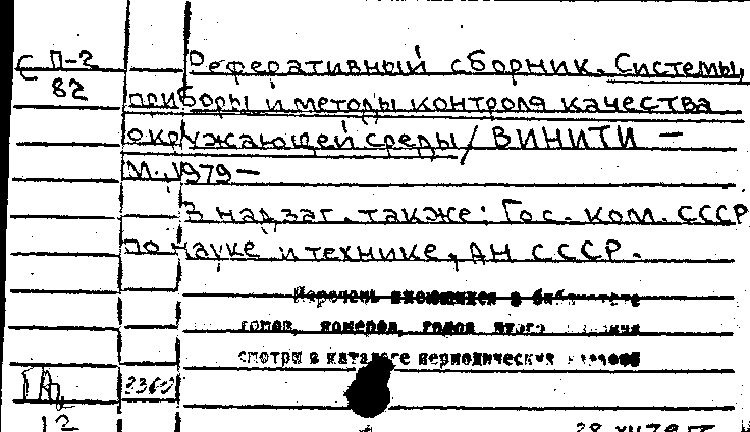 С П-2 Реферативный сборник. Системы,
82 приборы и методы контроля качества
окружающей среды / ВИНИТИ —
М., 1979 —
В надзаг. также: Гос. ком. СССР
по науке и технике, АН СССР.
Перечень имеющихся в библиотеке
томов, номеров, годов этого
смотри в каталоге периодических изданий
2360
12